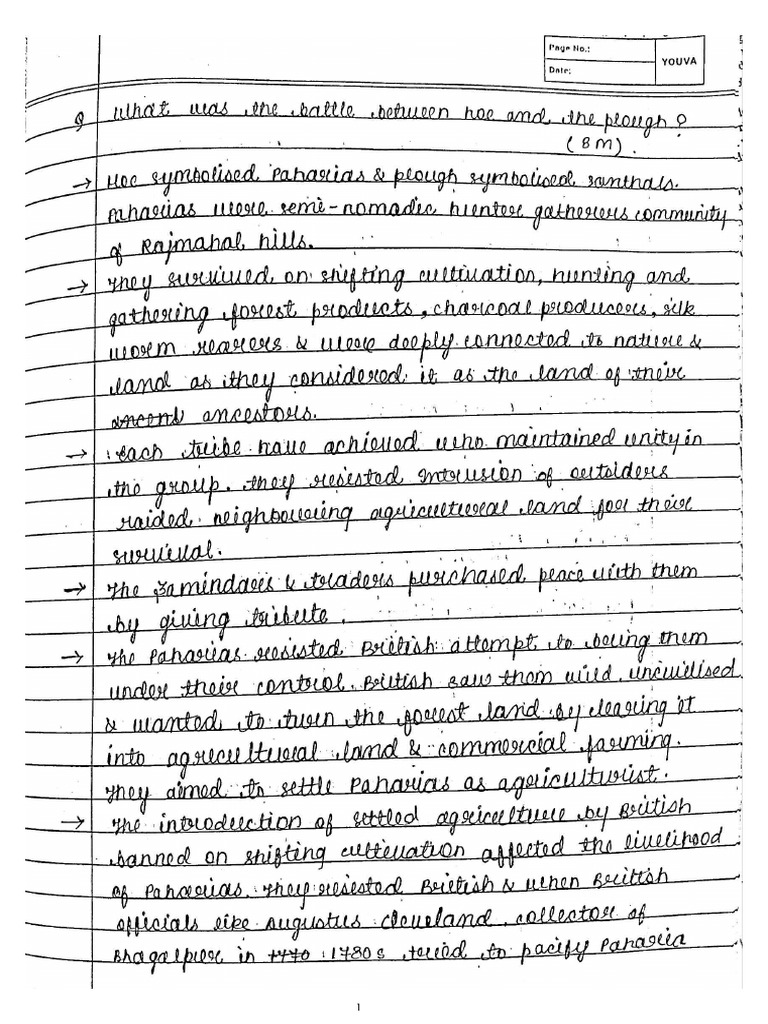 Page No.:
Date:
YOUVA
Q What was the battle between hoe and the plough?
(8M).
→ Hoe symbolised Paharias & plough symbolised santhals.
Paharias were semi-nomadic hunter gatherers community
of Rajmahal hills.
→ They survived on shifting cultivation, hunting and
gathering forest products, charcoal producers, silk
worm rearers & were deeply connected to nature &
land as they considered it as the land of their
ancestors.
→ Each tribe have achieved who maintained unity in
the group. They resisted intrusion of outsiders
raided neighbouring agricultural land for their
survival.
→ The zamindars & traders purchased peace with them
by giving tribute.
→ The Paharias resisted British attempt to being them
under their control. British saw them wild, uncivilised
& wanted to turn the forest land by clearing it
into agricultural land & commercial farming.
They aimed to settle Paharias as agriculturist.
→ The introduction of settled agriculture by British
banned on shifting cultivation affected the livelihood
of Paharias. They resisted British & when British
officials like Augustus Cleveland, collector of
Bhagalpur in 1770 1780s tried to pacify Paharia
1